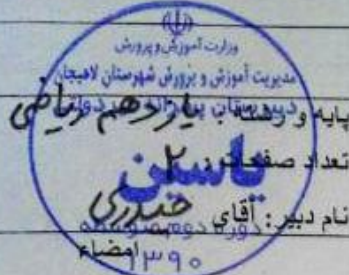 وزارت آموزش و پرورش
مدیریت آموزش و پرورش شهرستان لاهیجان
دبیرستان پسرانه غیر دولتی
پایه و رشته : یازدهم ریاضی
تعداد صفحات : ۲
یاسین
نام دبیر : آقای حیدری
دوره دوم متوسطه
امضاء
۱۳۹۰